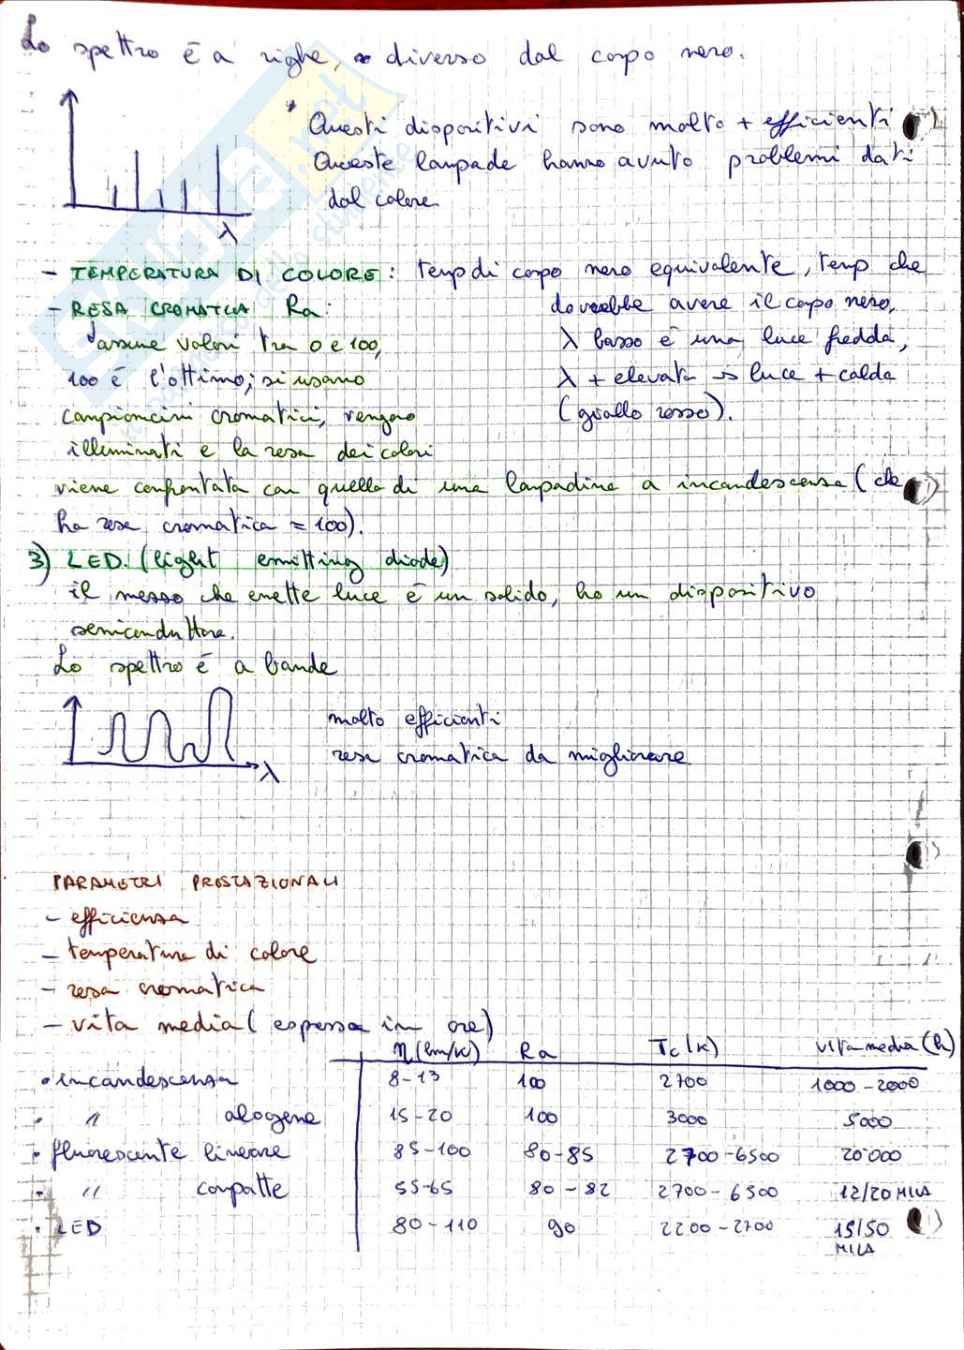 Lo spettro è a righe, e diverso dal corpo nero.
Questi dispositivi sono molto + efficienti
Queste lampade hanno avuto problemi dati
dal colore
λ
- TEMPERATURA DI COLORE: temp di corpo nero equivalente, temp che
dovrebbe avere il corpo nero,
λ basso è una luce fredda,
λ + elevata → luce + calda
(giallo rosso).
- RESA CROMATICA Ra:
assume valori tra 0 e 100,
100 è l'ottimo; si usano
campioncini cromatici, vengono
illuminati e la resa dei colori
viene confrontata con quella di una lampadina a incandescenza (che
ha resa cromatica = 100).
3) LED. (light emitting diode)
il mezzo che emette luce è un solido, ho un dispositivo
semiconduttore.
Lo spettro è a bande
molto efficienti
resa cromatica da migliorare
λ
PARAMETRI PRESTAZIONALI
- efficienza
- temperatura di colore
- resa cromatica
- vita media (espressa in ore)
η (lm/w) Ra Tc (K) vita media (h)
• incandescenza 8-13 100 2700 1000-2000
• " alogene 15-20 100 3000 5000
• fluorescente lineare 85-100 80-85 2700-6500 20'000
• " compatte 55-65 80-82 2700-6500 12/20 MILA
• LED 80-110 90 2200-2700 15/50
MILA